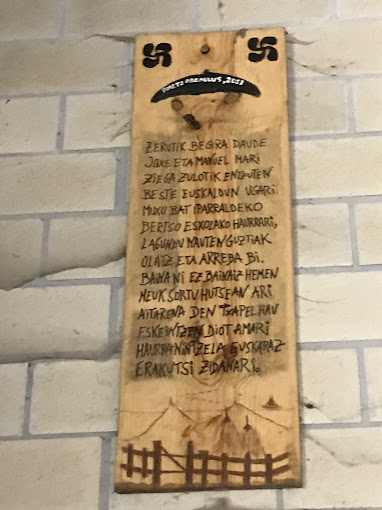 ZERUTIK BEGIRA DAUDE
JOXE ETA MANUEL MARI
ZIEGA ZULOTIK ENTZUTEN
BESTE EUSKALDUN UGARI.
MUXU BAT IPARRALDEKO
BERTSO ESKOLAKO HAURRARI,
LAGUNDU NAUTEN GUZTIAK
OLATZ ETA ARREBA BI.
BAINA NI EZ BAINAIZ HEMEN
NEUK SORTU HUTSEAN ARI
AITARENA DEN TXAPEL HAU
ESKEINTZEN DIOT AMARI
HAURRA NINTZELA EUSKARAZ
ERAKUTSI ZIDANARI.